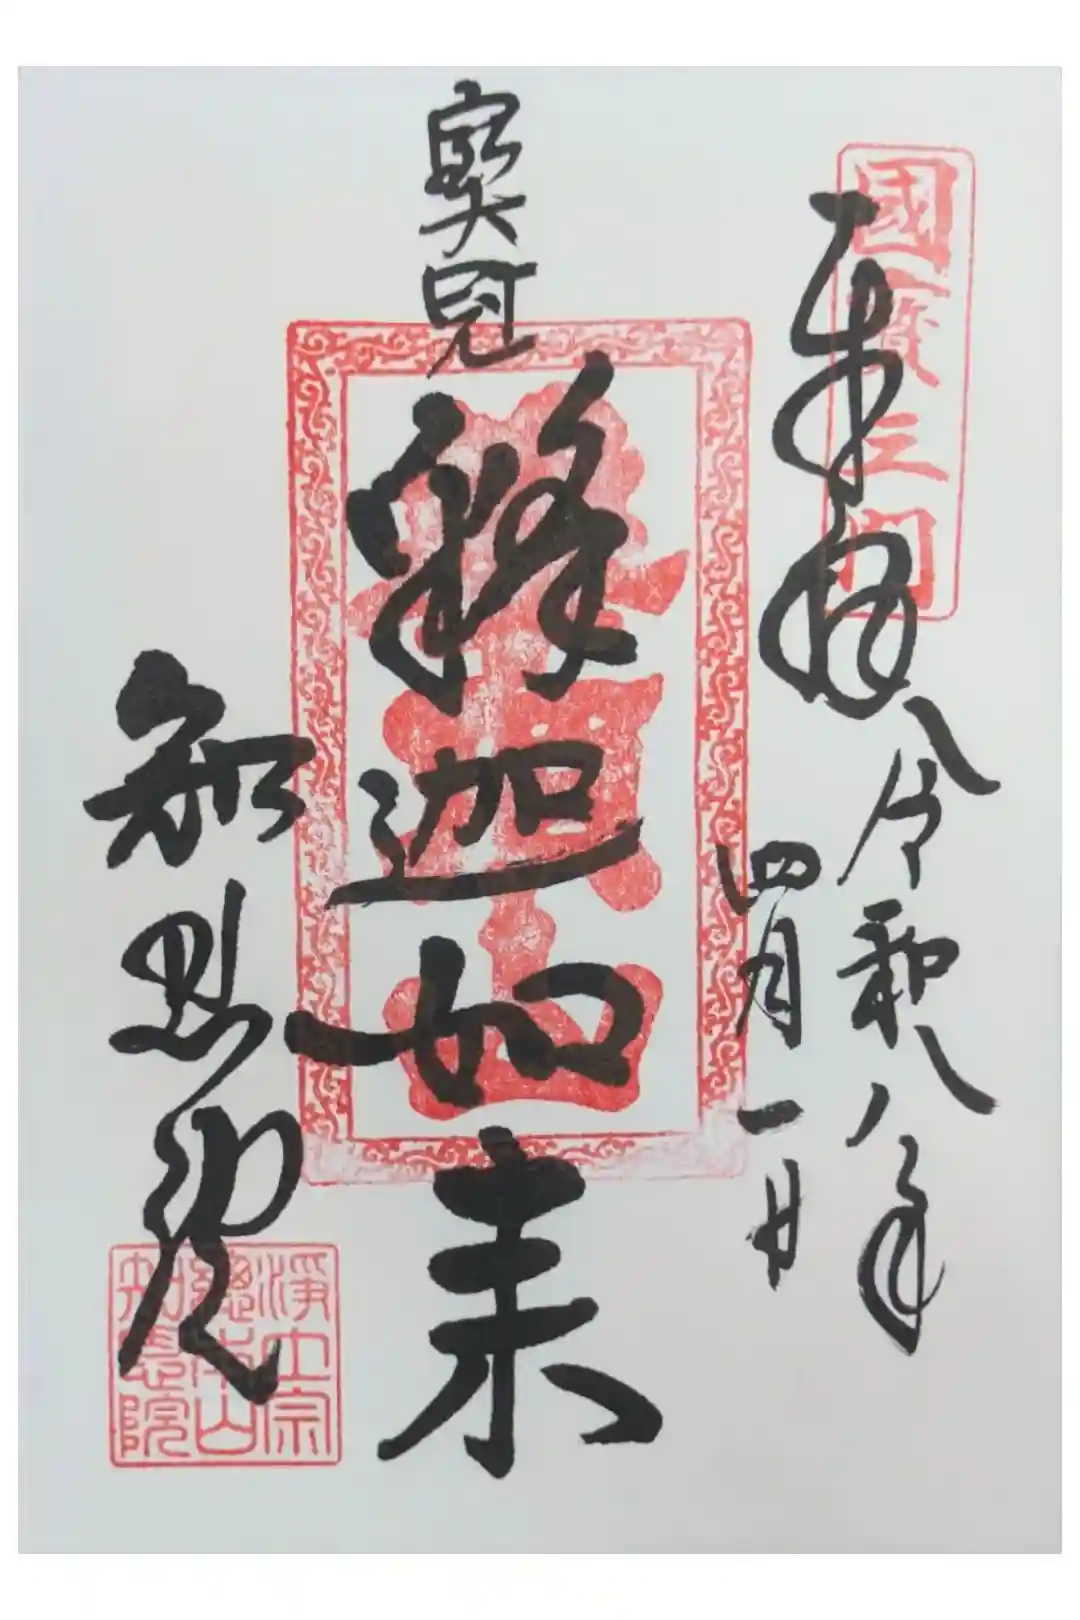 奉拝
令和八年
四月一日
寳冠
釋迦如来
知恩院
國寳三門
淨土宗
總本山
知恩院